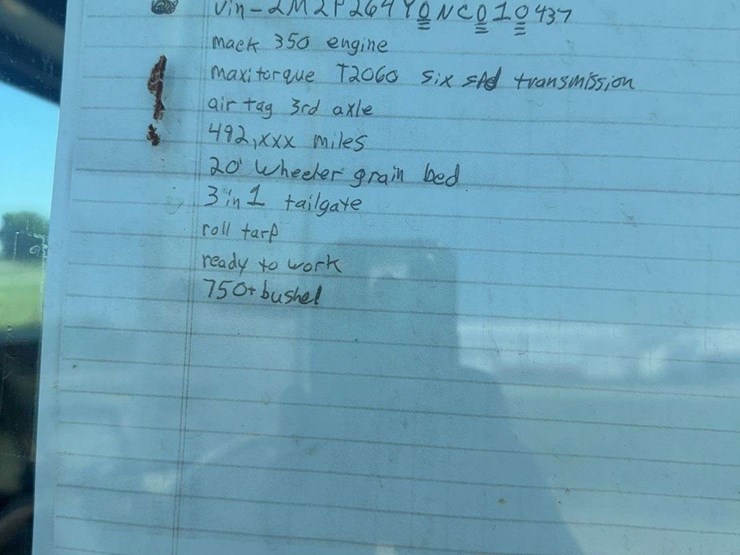 Vin-2M2P264Y0NC010437
mack 350 engine
maxitorque T2060 six spd transmission
air tag 3rd axle
492,xxx miles
20' wheeler grain bed
3 in 1 tailgate
roll tarp
ready to work
750+ bushel